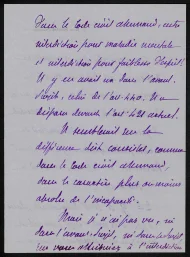 Dans le Code civil allemand, entre
interdiction pour maladie mentale
et interdiction pour faiblesse d'esprit?
Il y en avait un dans l'avant-
projet, celui de l'art. 440. On
disparu devant l'art 428 actuel.
Il semblerait que la
différence dût consister, comme
dans le Code civil allemand,
dans le caractère plus ou moins
absolu de l'incapacité.
Mais je n'ai pas vu, ni
dans l'avant-projet, ni dans le projet
que vous attribuiez à l'interdiction